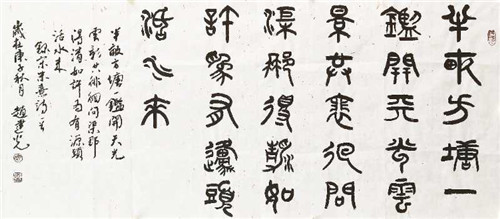 半畝方塘一
鑑開天光雲
景共裵回問
渠那得清如
許為有源頭
活水來
半畝方塘一鑑開天光
雲影共徘徊問渠那
得清如許為有源頭
活水來
錄宋朱熹詩
歲在庚子秋月 趙光